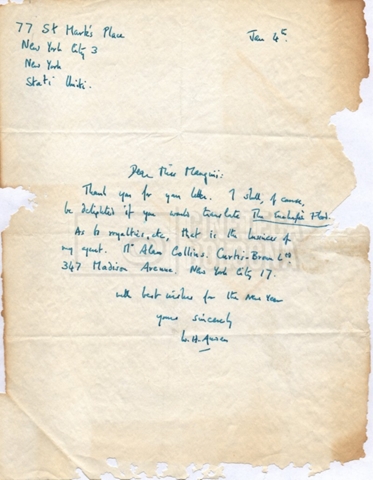 77 St Mark's Place
New York City 3
New York
Stati Uniti.
Jan 4th
Dear Miss Mangini:
Thank you for your letter. I shall, of course,
be delighted if you would translate The Enchafèd Flood.
As to royalties, etc, that is the business of
my agent. Mr Alan Collins. Curtis-Brown Ltd
347 Madison Avenue. New York City 17.
with best wishes for the New Year
yours sincerely
W.H. Auden